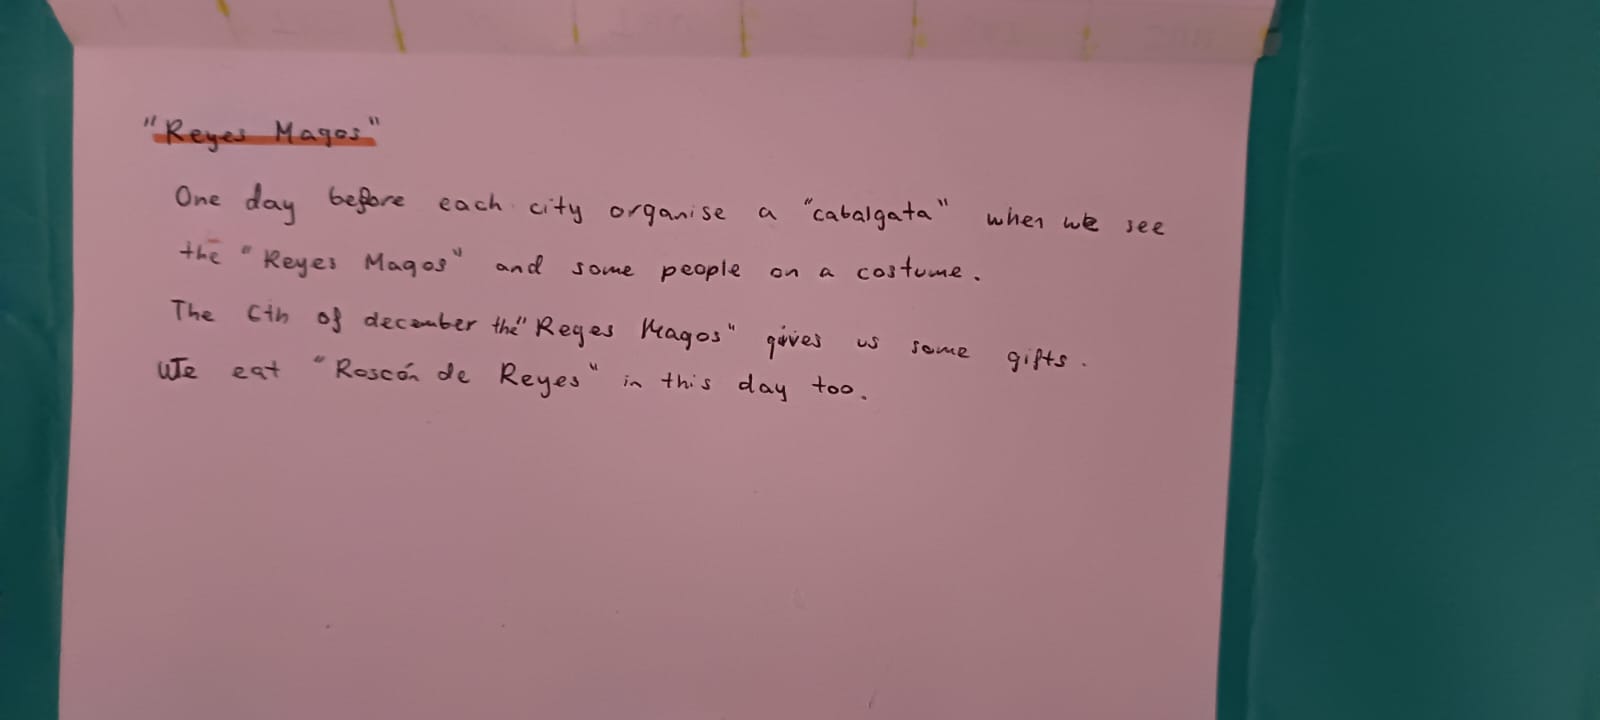 "Reyes Magos"
One day before each city organise a "cabalgata" when we see
the "Reyes Magos" and some people on a costume.
The 6th of december the "Reyes Magos" gives us some gifts.
We eat "Roscón de Reyes" in this day too.